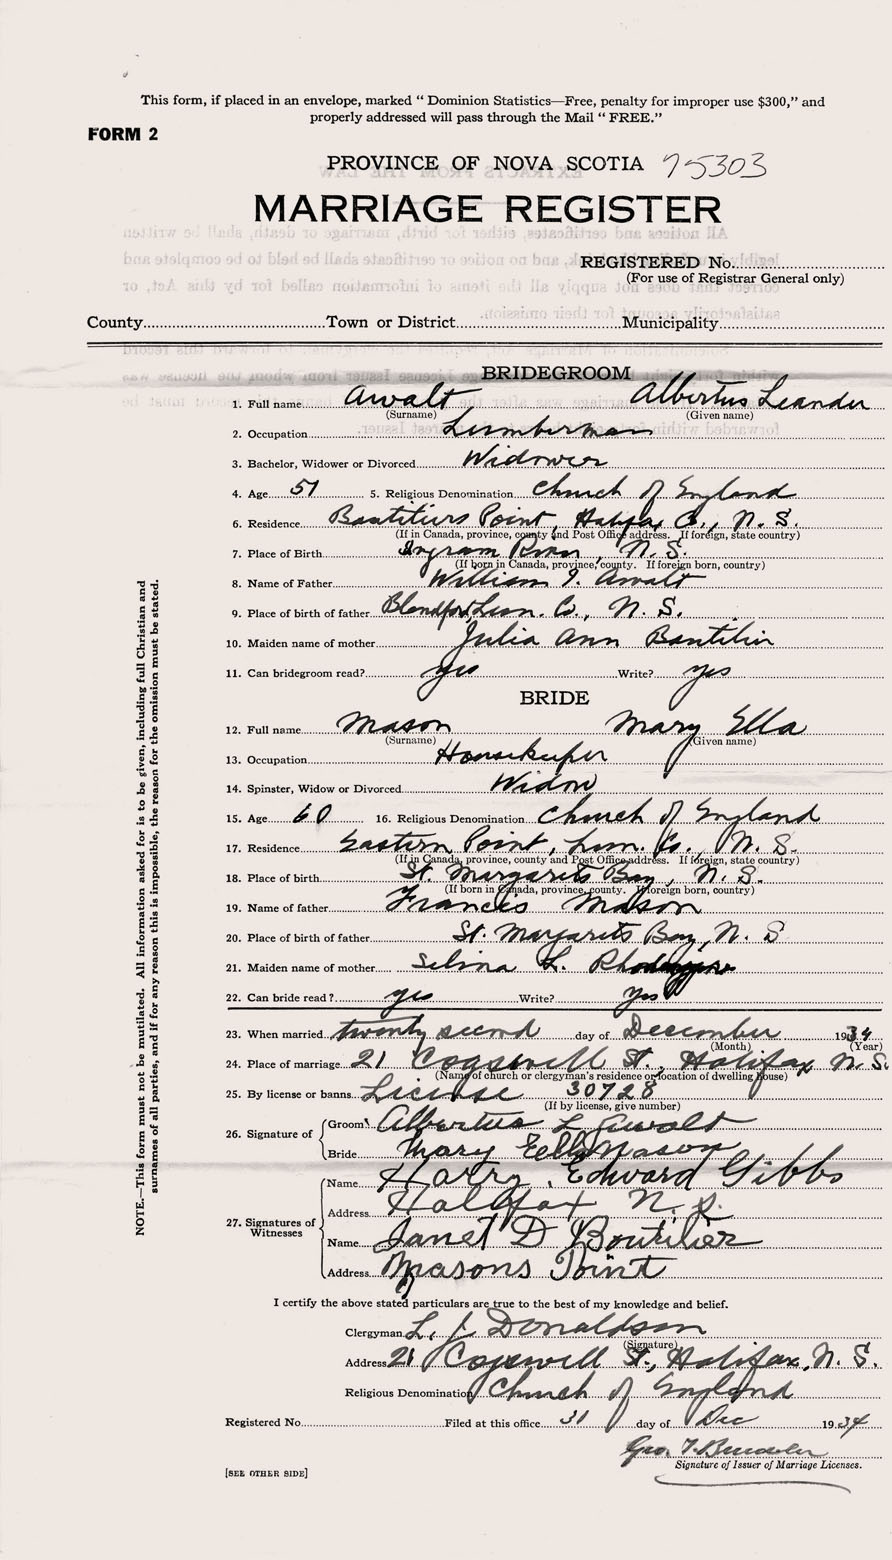 This form, if placed in an envelope, marked “ Dominion Statistics—Free, penalty for improper use $300,” and
properly addressed will pass through the Mail “ FREE.”
FORM 2
PROVINCE OF NOVA SCOTIA 75303
MARRIAGE REGISTER
REGISTERED No.
(For use of Registrar General only)
County Town or District Municipality
BRIDEGROOM
1. Full name Awalt Albertus Leander
(Surname) (Given name)
2. Occupation Lumberman
3. Bachelor, Widower or Divorced Widower
4. Age 51 5. Religious Denomination Church of England
6. Residence Point, Halifax Co., N. S.
(If in Canada, province, county and Post Office address. If foreign, state country)
7. Place of Birth Ingram River, N. S.
(If born in Canada, province, county. If foreign born, country)
8. Name of Father William J. Awalt
9. Place of birth of father Blandford, Lun. Co., N. S.
10. Maiden name of mother Julia Ann
11. Can bridegroom read? yes Write? yes
BRIDE
12. Full name Mason Mary Ella
(Surname) (Given name)
13. Occupation Housekeeper
14. Spinster, Widow or Divorced Widow
15. Age 60 16. Religious Denomination Church of England
17. Residence Eastern Point, Lun. Co., N. S.
(If in Canada, province, county and Post Office address. If foreign, state country)
18. Place of birth St. Margarets Bay, N. S.
(If born in Canada, province, county. If foreign born, country)
19. Name of father Francis Mason
20. Place of birth of father St. Margarets Bay, N. S
21. Maiden name of mother Selina L.
22. Can bride read ? yes Write? yes
23. When married twenty second day of December 1934
(Month) (Year)
24. Place of marriage 21 Cogswell St., Halifax N. S.
(Name of church or clergyman's residence or location of dwelling house)
25. By license or banns License 30728
(If by license, give number)
26. Signature of Groom Albertus L Awalt
Bride Mary Ella Mason
27. Signatures of Witnesses
Name Harry Edward Gibbs
Address Halifax N. S.
Name Janet D Boutilier
Address Masons Point
I certify the above stated particulars are true to the best of my knowledge and belief.
Clergyman L. J. Donaldson
(Signature)
Address 21 Cogswell St., Halifax, N. S.
Religious Denomination Church of England
Registered No. Filed at this office 31 day of Dec 1934
Geo. T.
Signature of Issuer of Marriage Licenses.
[SEE OTHER SIDE]
NOTE.—This form must not be mutilated. All information asked for is to be given, including full Christian and
surnames of all parties, and if for any reason this is impossible, the reason for the omission must be stated.